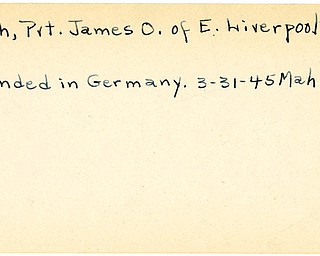 h, Pvt. James O. of E. Liverpool
nded in Germany. 3-31-45 Mah